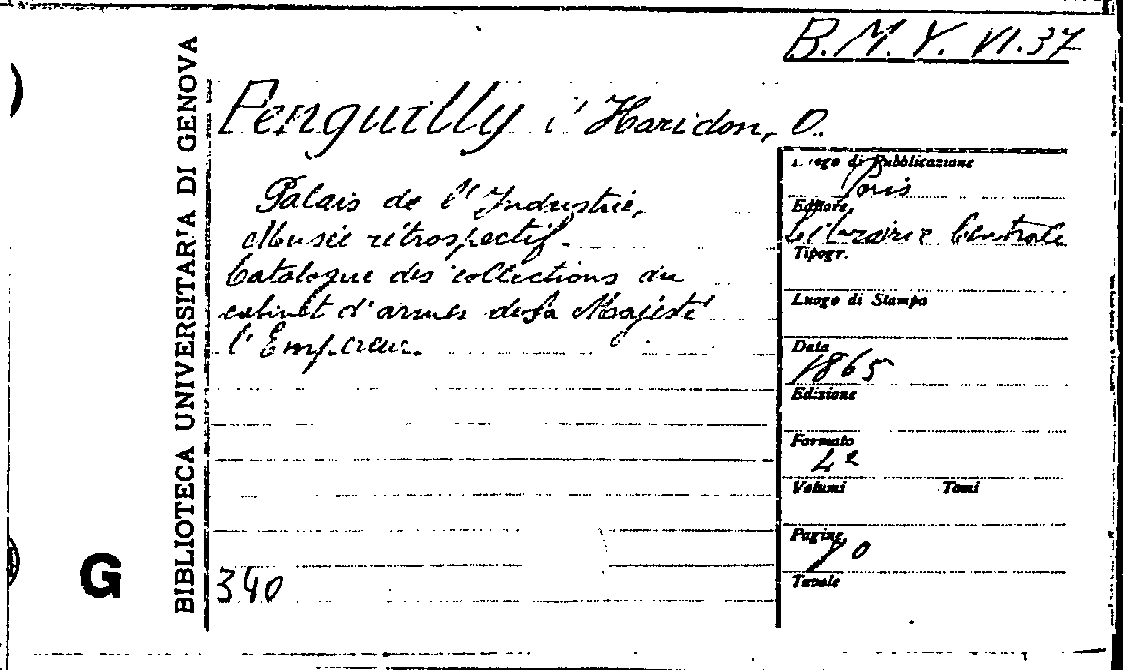 B.M.Y. VI.37
BIBLIOTECA UNIVERSITARIA DI GENOVA
G
Penguilly l'Haridon, O.
Palais de l'Industrie,
Musée rétrospectif.
Catalogue des collections du
cabinet d'armes de Sa Majesté
l'Empereur.
340
Luogo di Pubblicazione
Paris
Editore
Librairie Centrale
Tipogr.
Luogo di Stampa
Data
1865
Edizione
Formato
4º
Volumi Tomi
Pagine
70
Tavole